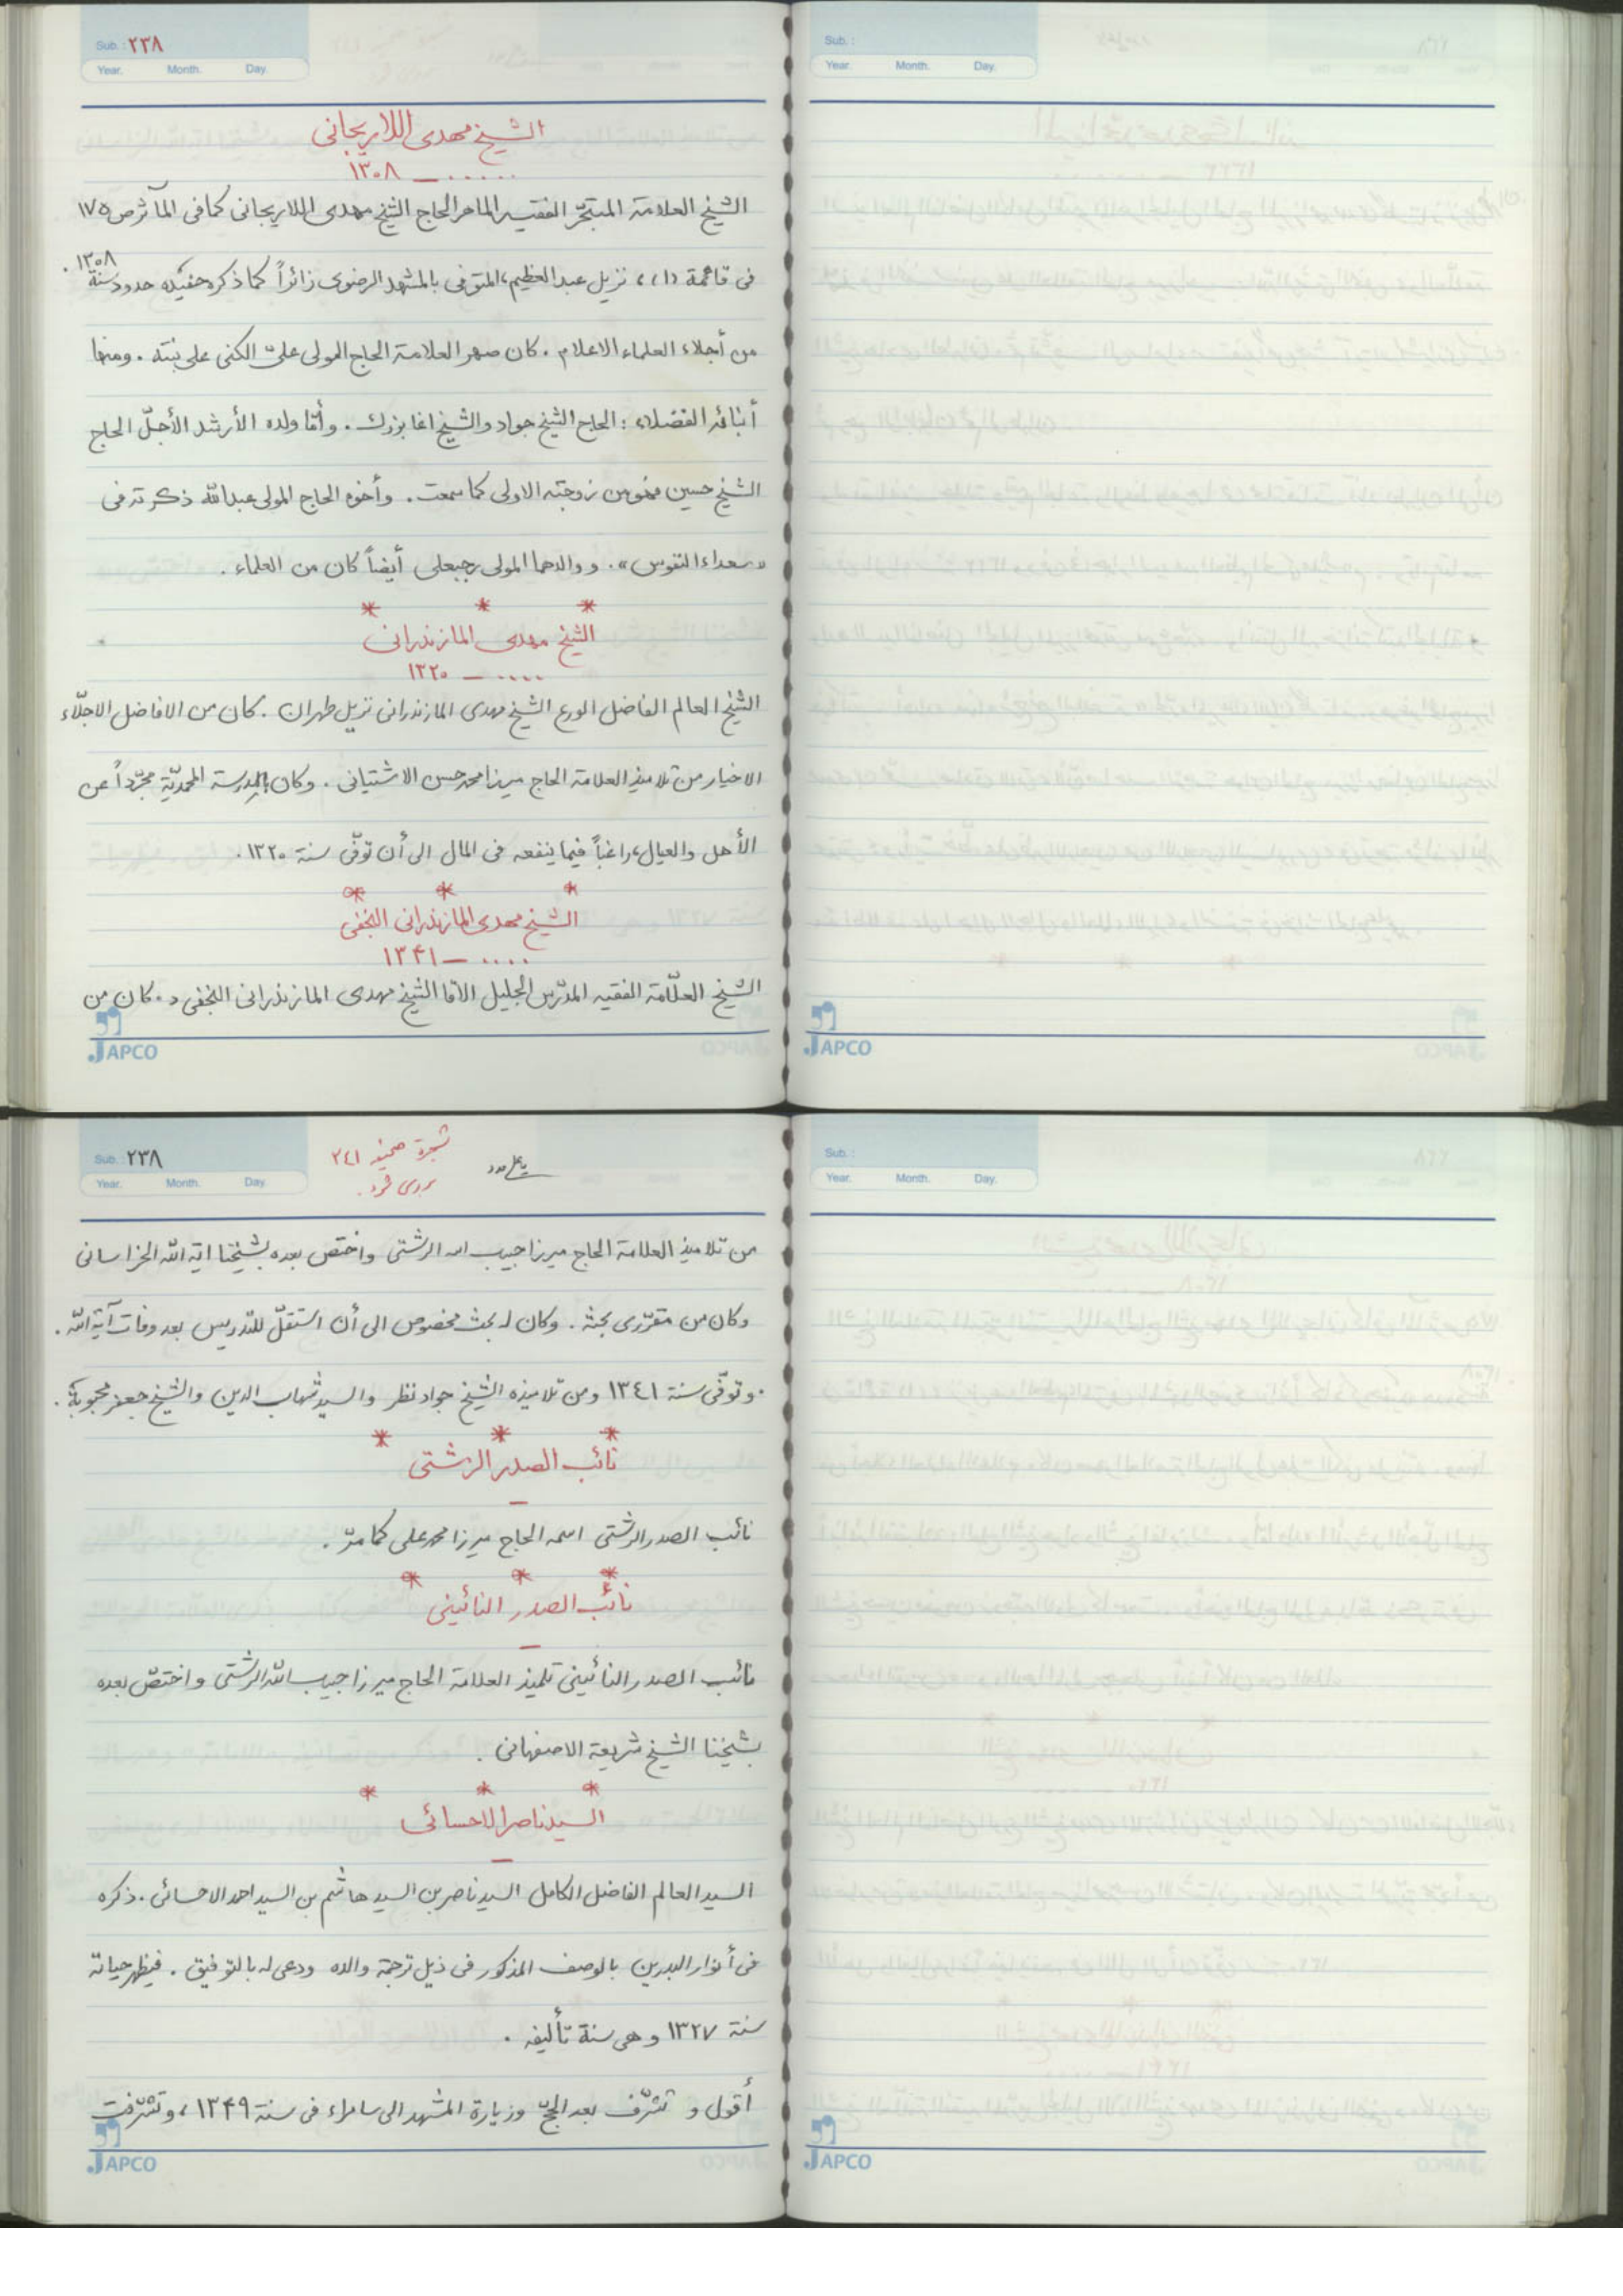 Sub. : ٢٣٨
Year. Month. Day.
الشيخ مهدى اللاريجانى
..... ــ ١٣٠٨
الشيخ العلامة المتبحّر الفقيه الماهر الحاج الشيخ مهدى اللاريجانى كما فى المآثر ص ١٧٥
فى قائمة (١)، نزيل عبد العظيم، المتوفى بالمشهد الرضوى زائراً كما ذكره حفيده حدود سنة ١٣٠٨ .
من أجلاء العلماء الاعلام . كان صهر العلامة الحاج المولى علىّ الكنى على بنته . ومنها
أبنائه الفضلاء : الحاج الشيخ جواد والشيخ اغا بزرك . وأمّا ولده الأرشد الأجلّ الحاج
الشيخ حسين فهو من زوجته الاولى كما سمعت . وأخوه الحاج المولى عبدالله ذكرته فى
«سعداء النفوس» . و والدهما المولى رجبعلى أيضاً كان من العلماء .
* * *
الشيخ مهدى المازندرانى
.... ــ ١٣٢٠
الشيخ العالم الفاضل الورع الشيخ مهدى المازندرانى نزيل طهران . كان من الافاضل الاجلّاء
الاخيار من تلاميذ العلامة الحاج ميرزا محمد حسن الاشتيانى . وكان بالمدرسة المحمديّة مجرّداً عن
الأهل والعيال، راغباً فيما ينفعه فى المال الى أن توفّى سنة ١٣٢٠ .
* * *
الشيخ مهدى المازندرانى النجفى
.... ــ ١٣٤١
الشيخ العلّامة الفقيه المدرّس الجليل الاقا الشيخ مهدى المازندرانى النجفى . كان من
JAPCO
Sub. :
Year. Month. Day.
JAPCO
Sub. : ٢٣٨
Year. Month. Day.
شجرة صحيفه ٢٤١
من تلاميذ العلامة الحاج ميرزا حبيب الله الرشتى واختص بعده بشيخنا اية الله الخراسانى
وكان من مقرّرى بحثه . وكان له بحث مخصوص الى أن استقلّ للتدريس بعد وفات آية الله .
. وتوفّى سنة ١٣٤١ ومن تلاميذه الشيخ جواد نظر والسيد شهاب الدين والشيخ جعفر محبوبة .
* * *
نائب الصدر الرشتى
ــ
نائب الصدر الرشتى اسمه الحاج ميرزا محمد على كما مرّ .
* * *
نائب الصدر النائينى
ــ
نائب الصدر النائينى تلميذ العلامة الحاج ميرزا حبيب الله الرشتى واختصّ بعده
بشيخنا الشيخ شريعة الاصفهانى .
* * *
السيد ناصر الاحسائى
ــ
السيد العالم الفاضل الكامل السيد ناصر بن السيد هاشم بن السيد احمد الاحسائى . ذكره
فى أنوار البدرين بالوصف المذكور فى ذيل ترجمة والده ودعى له بالتوفيق . فيظهر حياته
سنة ١٣٢٧ و هى سنة تأليفه .
أقول و تشرّف بعد الحجّ وزيارة المشهد الى سامراء فى سنة ١٣٤٩، وتشرّفت
JAPCO
Sub. :
Year. Month. Day.
JAPCO